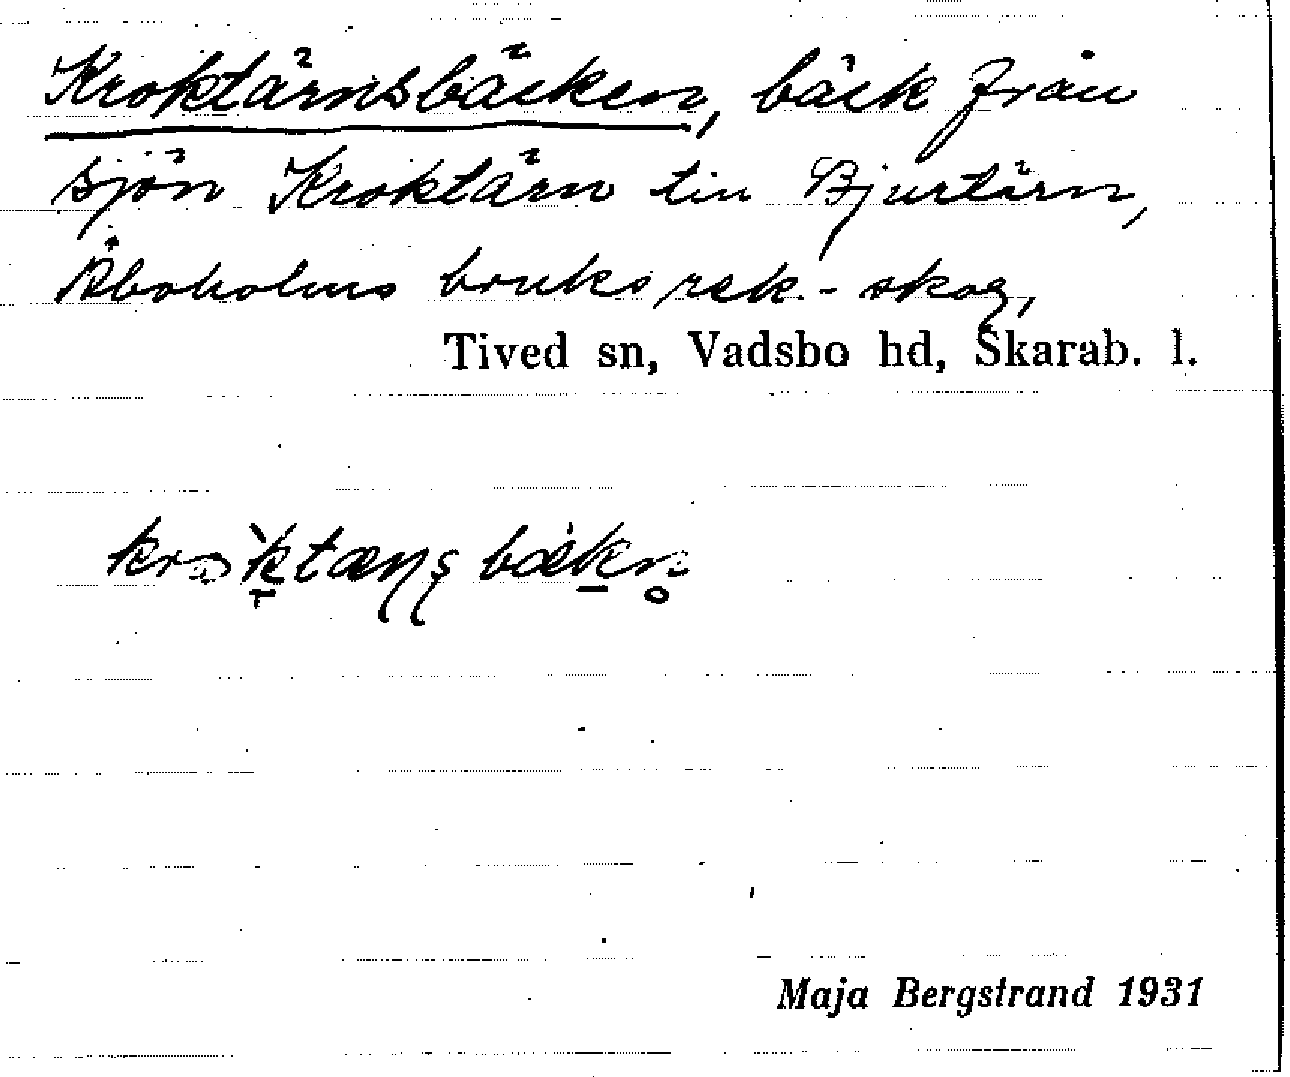 Kroktärnsbäcken, bäck från
sjön Kroktärn till Bjurtärn,
Åboholms bruks rek.-skog,
Tived sn, Vadsbo hd, Skarab. l.
Maja Bergstrand 1931